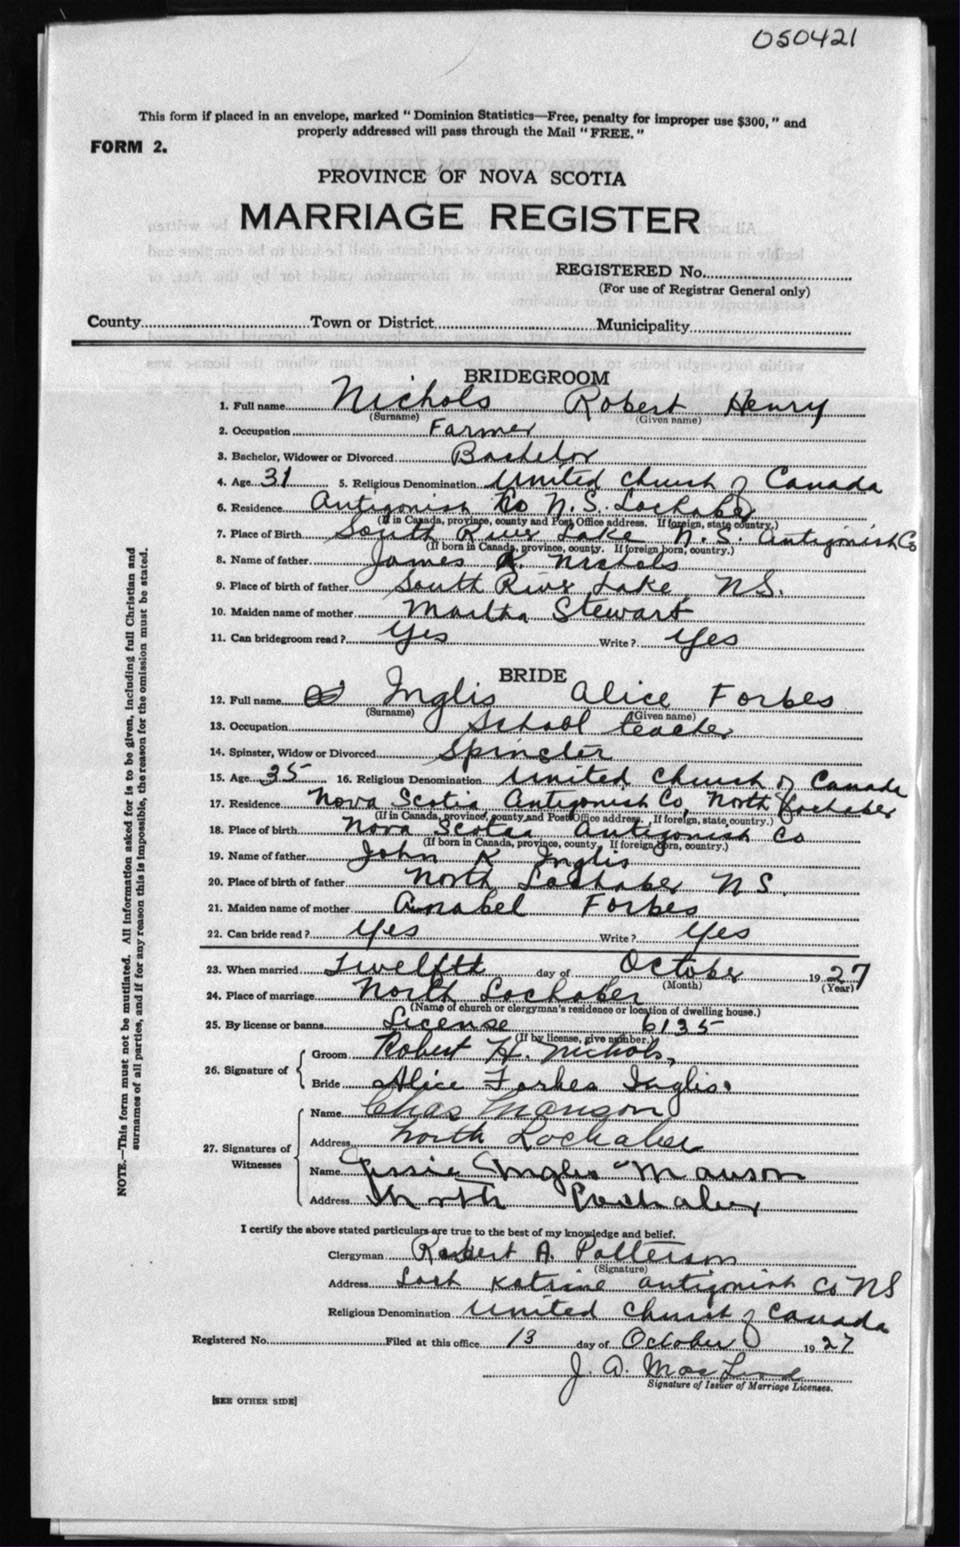 050421
This form if placed in an envelope, marked "Dominion Statistics—Free, penalty for improper use $300," and
properly addressed will pass through the Mail "FREE."
FORM 2.
PROVINCE OF NOVA SCOTIA
MARRIAGE REGISTER
REGISTERED No.
(For use of Registrar General only)
County Town or District Municipality
BRIDEGROOM
1. Full name Nichols Robert Henry
(Surname) (Given name)
2. Occupation Farmer
3. Bachelor, Widower or Divorced Bachelor
4. Age 31 5. Religious Denomination United Church of Canada
6. Residence Antigonish Co N.S. Lochaber
(If in Canada, province, county and Post Office address. If foreign, state country.)
7. Place of Birth South River Lake N.S. Antigonish Co
(If born in Canada, province, county. If foreign born, country.)
8. Name of father James Nichols
9. Place of birth of father South River Lake, NS.
10. Maiden name of mother Martha Stewart
11. Can bridegroom read? Yes Write? Yes
BRIDE
12. Full name Inglis Alice Forbes
(Surname) (Given name)
13. Occupation School teacher
14. Spinster, Widow or Divorced Spinster
15. Age 35 16. Religious Denomination United Church of Canada
17. Residence Nova Scotia Antigonish Co, North Lochaber
(If in Canada, province, county and Post Office address. If foreign, state country.)
18. Place of birth Nova Scotia Antigonish Co
(If born in Canada, province, county. If foreign born, country.)
19. Name of father John K Inglis
20. Place of birth of father North Lochaber NS.
21. Maiden name of mother Anabel Forbes
22. Can bride read? Yes Write? Yes
23. When married Twelfth day of October 1927
(Month) (Year)
24. Place of marriage North Lochaber
(Name of church or clergyman's residence or location of dwelling house.)
25. By license or banns License 6135
(If by license, give number.)
26. Signature of
Groom Robert H. Nichols,
Bride Alice Forbes Inglis.
27. Signatures of Witnesses
Name Chas Manson
Address North Lochaber
Name Jessie Inglis Manson
Address North Lochaber
I certify the above stated particulars are true to the best of my knowledge and belief.
Clergyman Robert A. Patterson
(Signature)
Address Loch Katrine Antigonish Co NS
Religious Denomination United Church of Canada
Registered No. Filed at this office 13 day of October 1927
J. A. MacLeod
Signature of Issuer of Marriage Licenses.
[SEE OTHER SIDE]
NOTE.—This form must not be mutilated. All information asked for is to be given, including full Christian and
surnames of all parties, and if for any reason this is impossible, the reason for the omission must be stated.